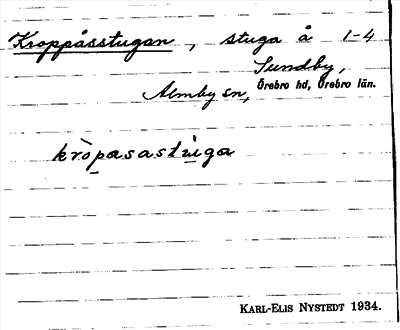 Kroppåsstugan, stuga å 1-4
Sundby,
Almby sn, Örebro hd, Örebro län.
kròpasastu̇ga
KARL-ELIS NYSTEDT 1934.